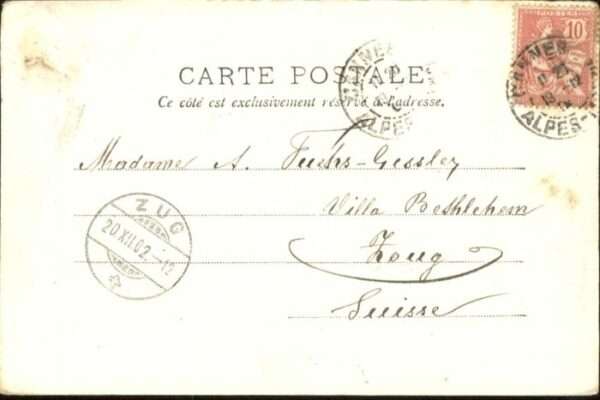 CARTE POSTALE
Ce côté est exclusivement réservé à l'adresse.
10
POSTES
CANNES
ALPES-
CANNES
ALPES
Madame A. Fuchs-Gessler
Villa Bethlehem
Zoug
Suisse
ZUG
20.XII.02.-12